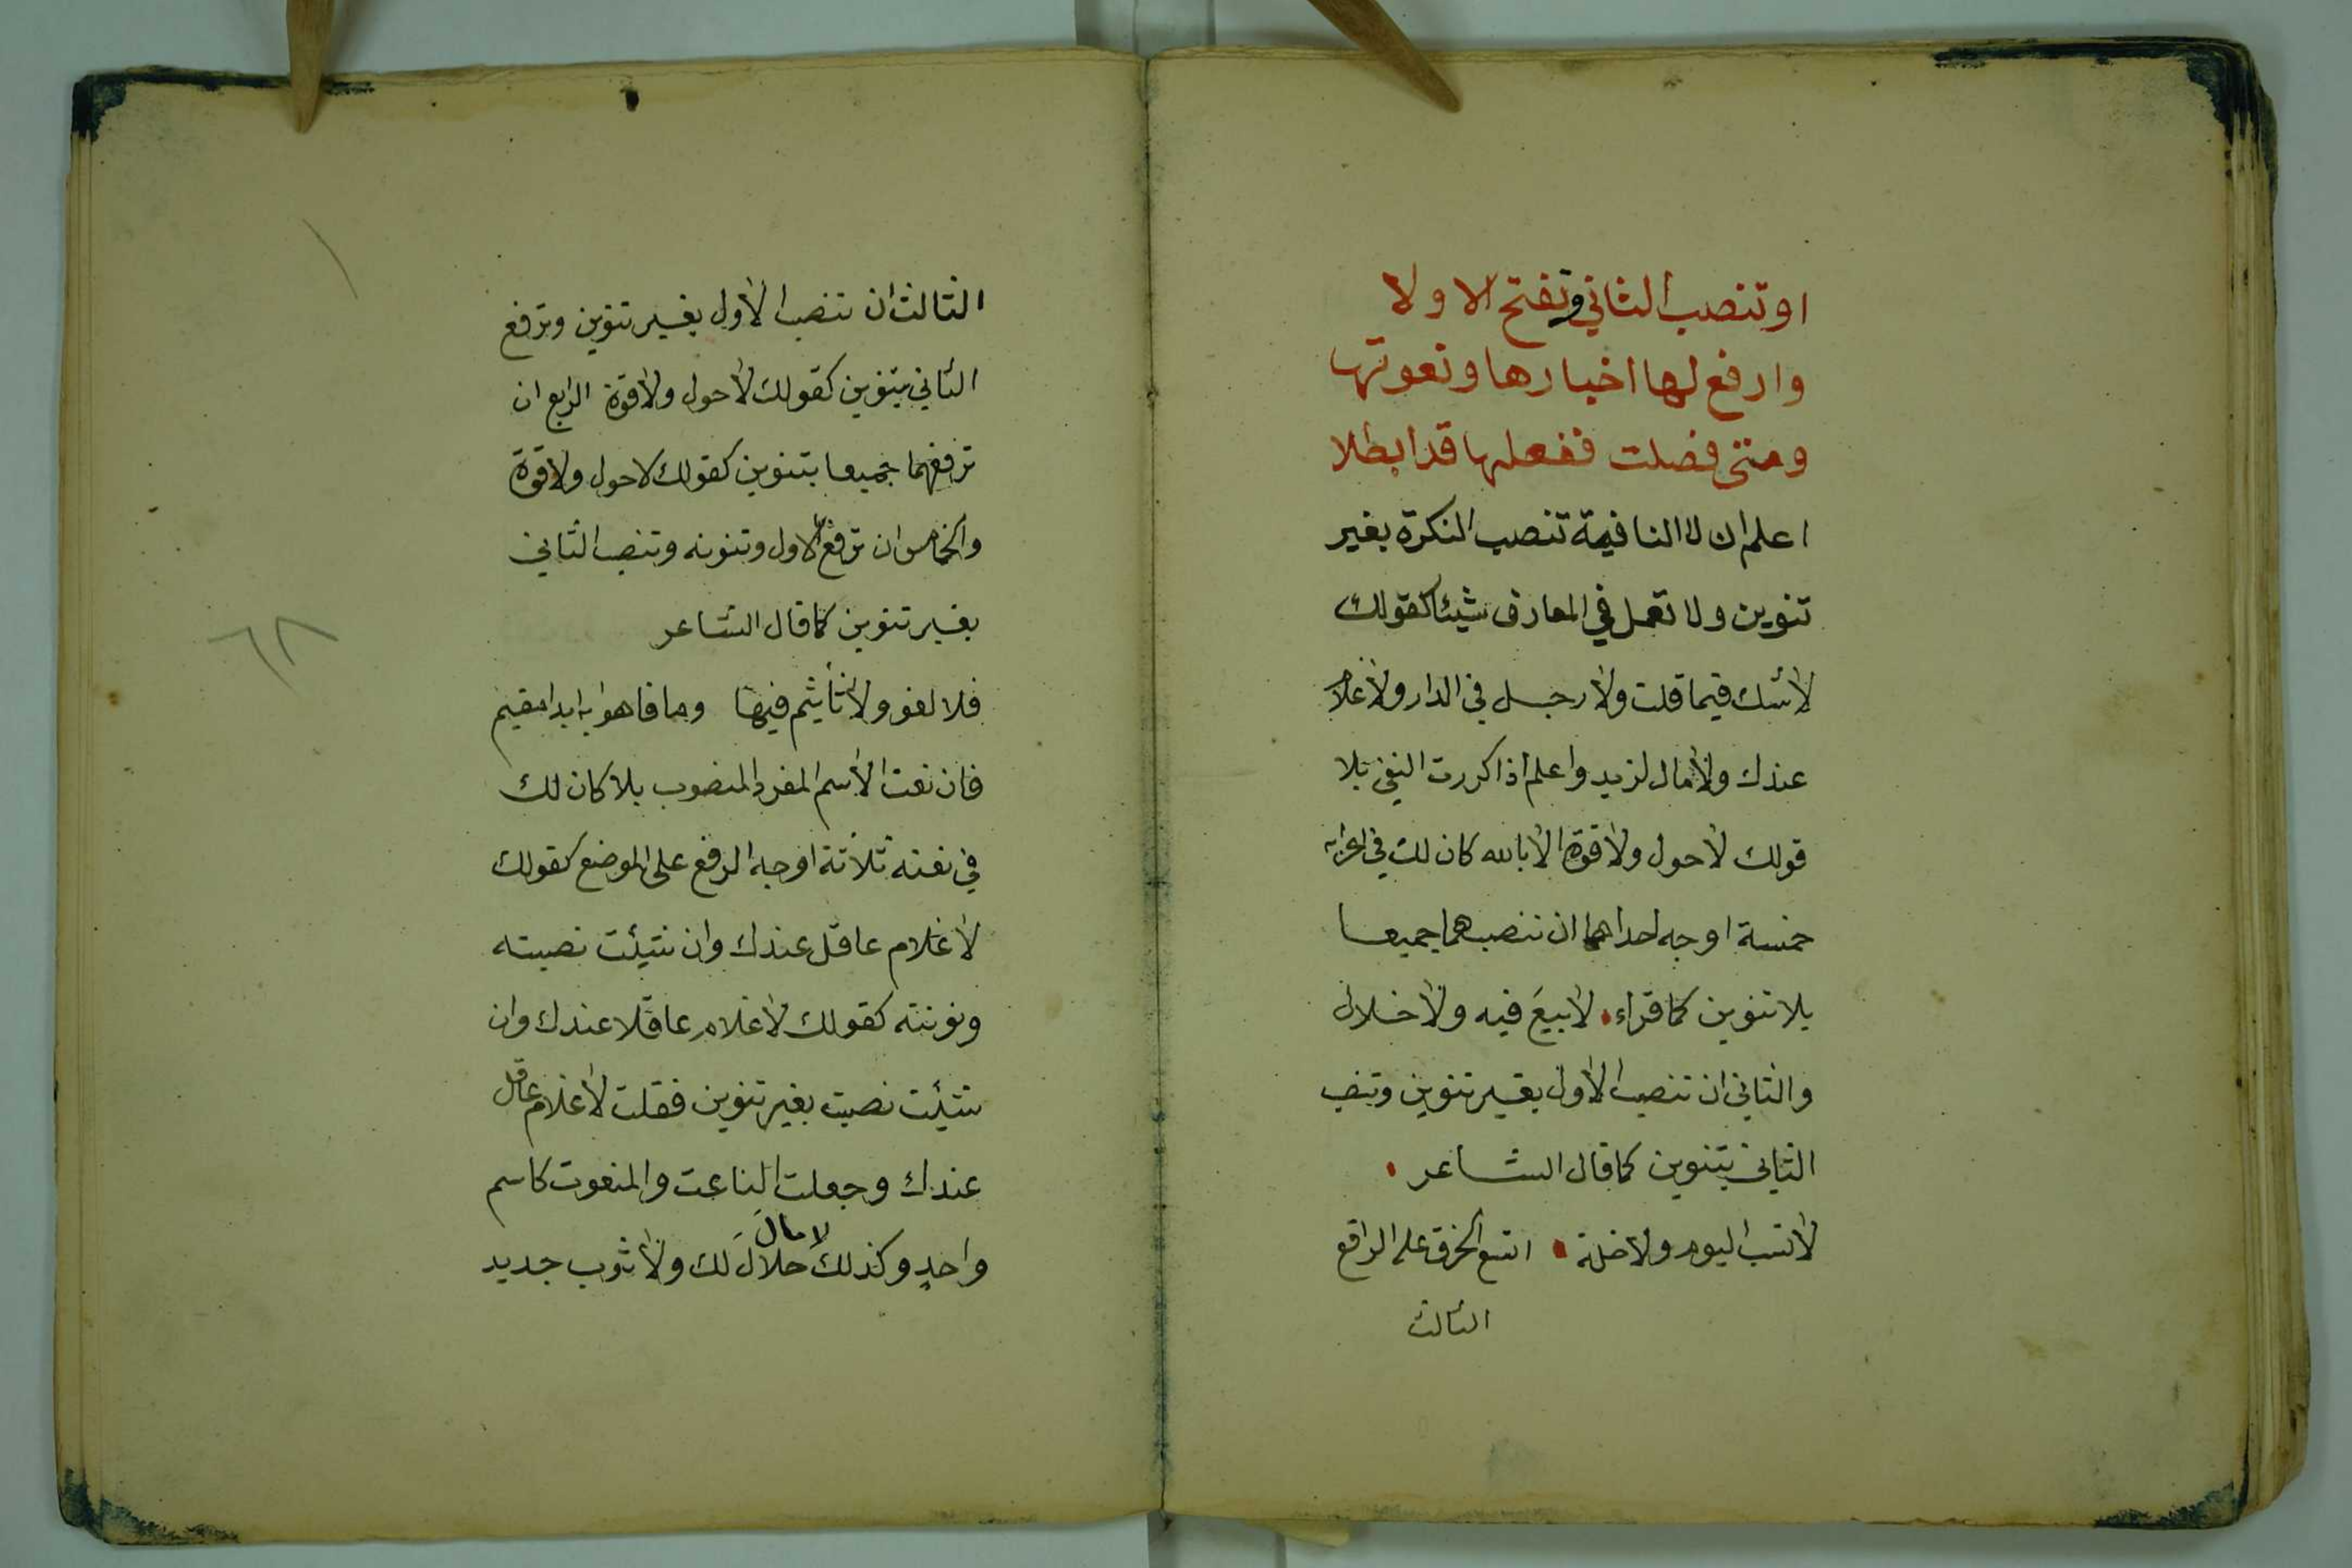 او تنصب الثاني وتفتح الاولا
وارفع لها اخبارها ونعوتها
ومتى فصلت ففعلها قد ابطلا
اعلم ان لا النافية تنصب النكرة بغير
تنوين ولا تعمل في المعارف شيئا كقولك
لا شك فيما قلت ولا رجل في الدار ولا غلام
عندك ولا مال لزيد واعلم اذا كررت النفي بلا
قولك لا حول ولا قوة الا بالله كان لك في اعرابه
خمسة اوجه احداهما ان تنصبهما جميعا
بلا تنوين كما قراء لا بيعَ فيه ولا خلال
والثاني ان تنصب الاول بغير تنوين وتنصب
الثاني بتنوين كما قال الشاعر
لا نسب اليوم ولا خلة اتسع الخرق على الراقع
الثالث
الثالث ان تنصب الاول بغير تنوين وترفع
الثاني بتنوين كقولك لا حول ولا قوة الرابع ان
ترفعهما جميعا بتنوين كقولك لا حول ولا قوة
والخامس ان ترفع الاول وتنونه وتنصب الثاني
بغير تنوين كما قال الشاعر
فلا لغو ولا تأثيم فيها وما فاهوا به ابدا مقيم
فان نعت الاسم المفرد المنصوب بلا كان لك
في نعته ثلاثة اوجه الرفع على الموضع كقولك
لا غلام عاقل عندك وان شئت نصبته
ونونته كقولك لا غلام عاقلا عندك وان
شئت نصبت بغير تنوين فقلت لا غلام عاقل
عندك وجعلت الناعت والمنعوت كاسم
لا مالَ
واحدٍ وكذلك حلالَ لك ولا ثوب جديد
٦٨